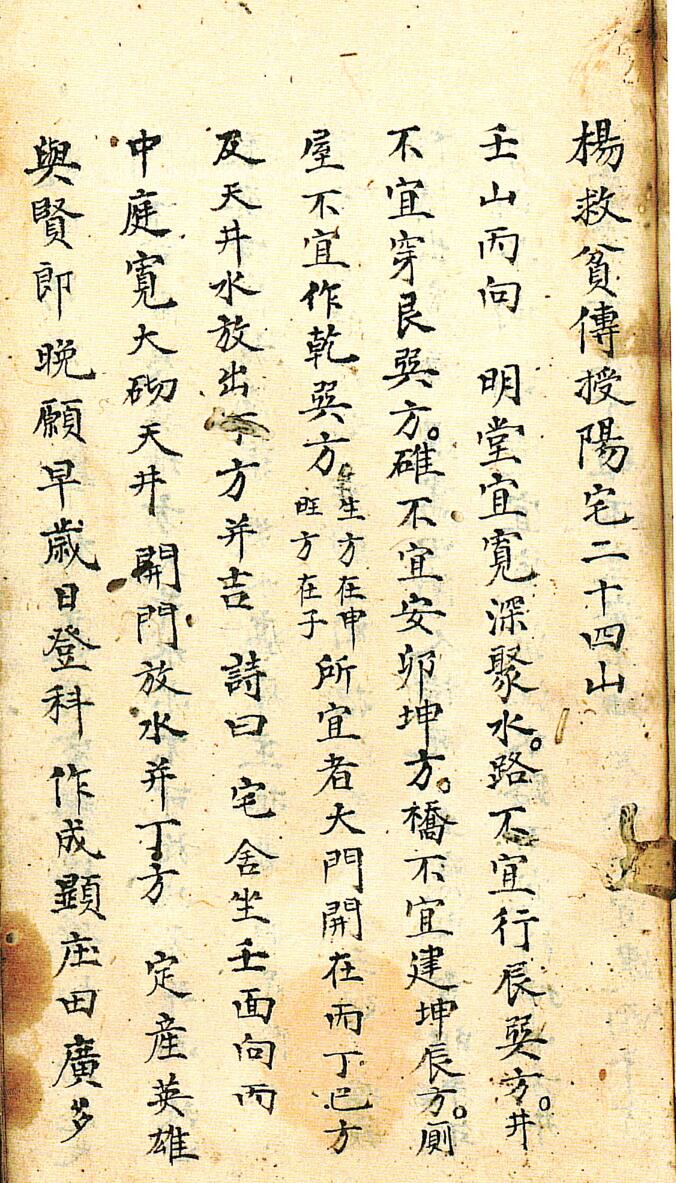 楊救貧傳授陽宅二十四山
壬山丙向 明堂宜寬深聚水。路不宜行辰巽方。井
不宜穿艮巽方。碓不宜安卯坤方。橋不宜建坤辰方。厠
屋不宜作乾巽方 生方在申 旺方在子 所宜者大門開在丙丁巳方
及天井水放出丁方并吉 詩曰 宅舍坐壬面向丙
中庭寬大砌天井 開門放水并丁方 定産英雄
與賢郎 晚願早歲日登科 作成顕庄田廣多